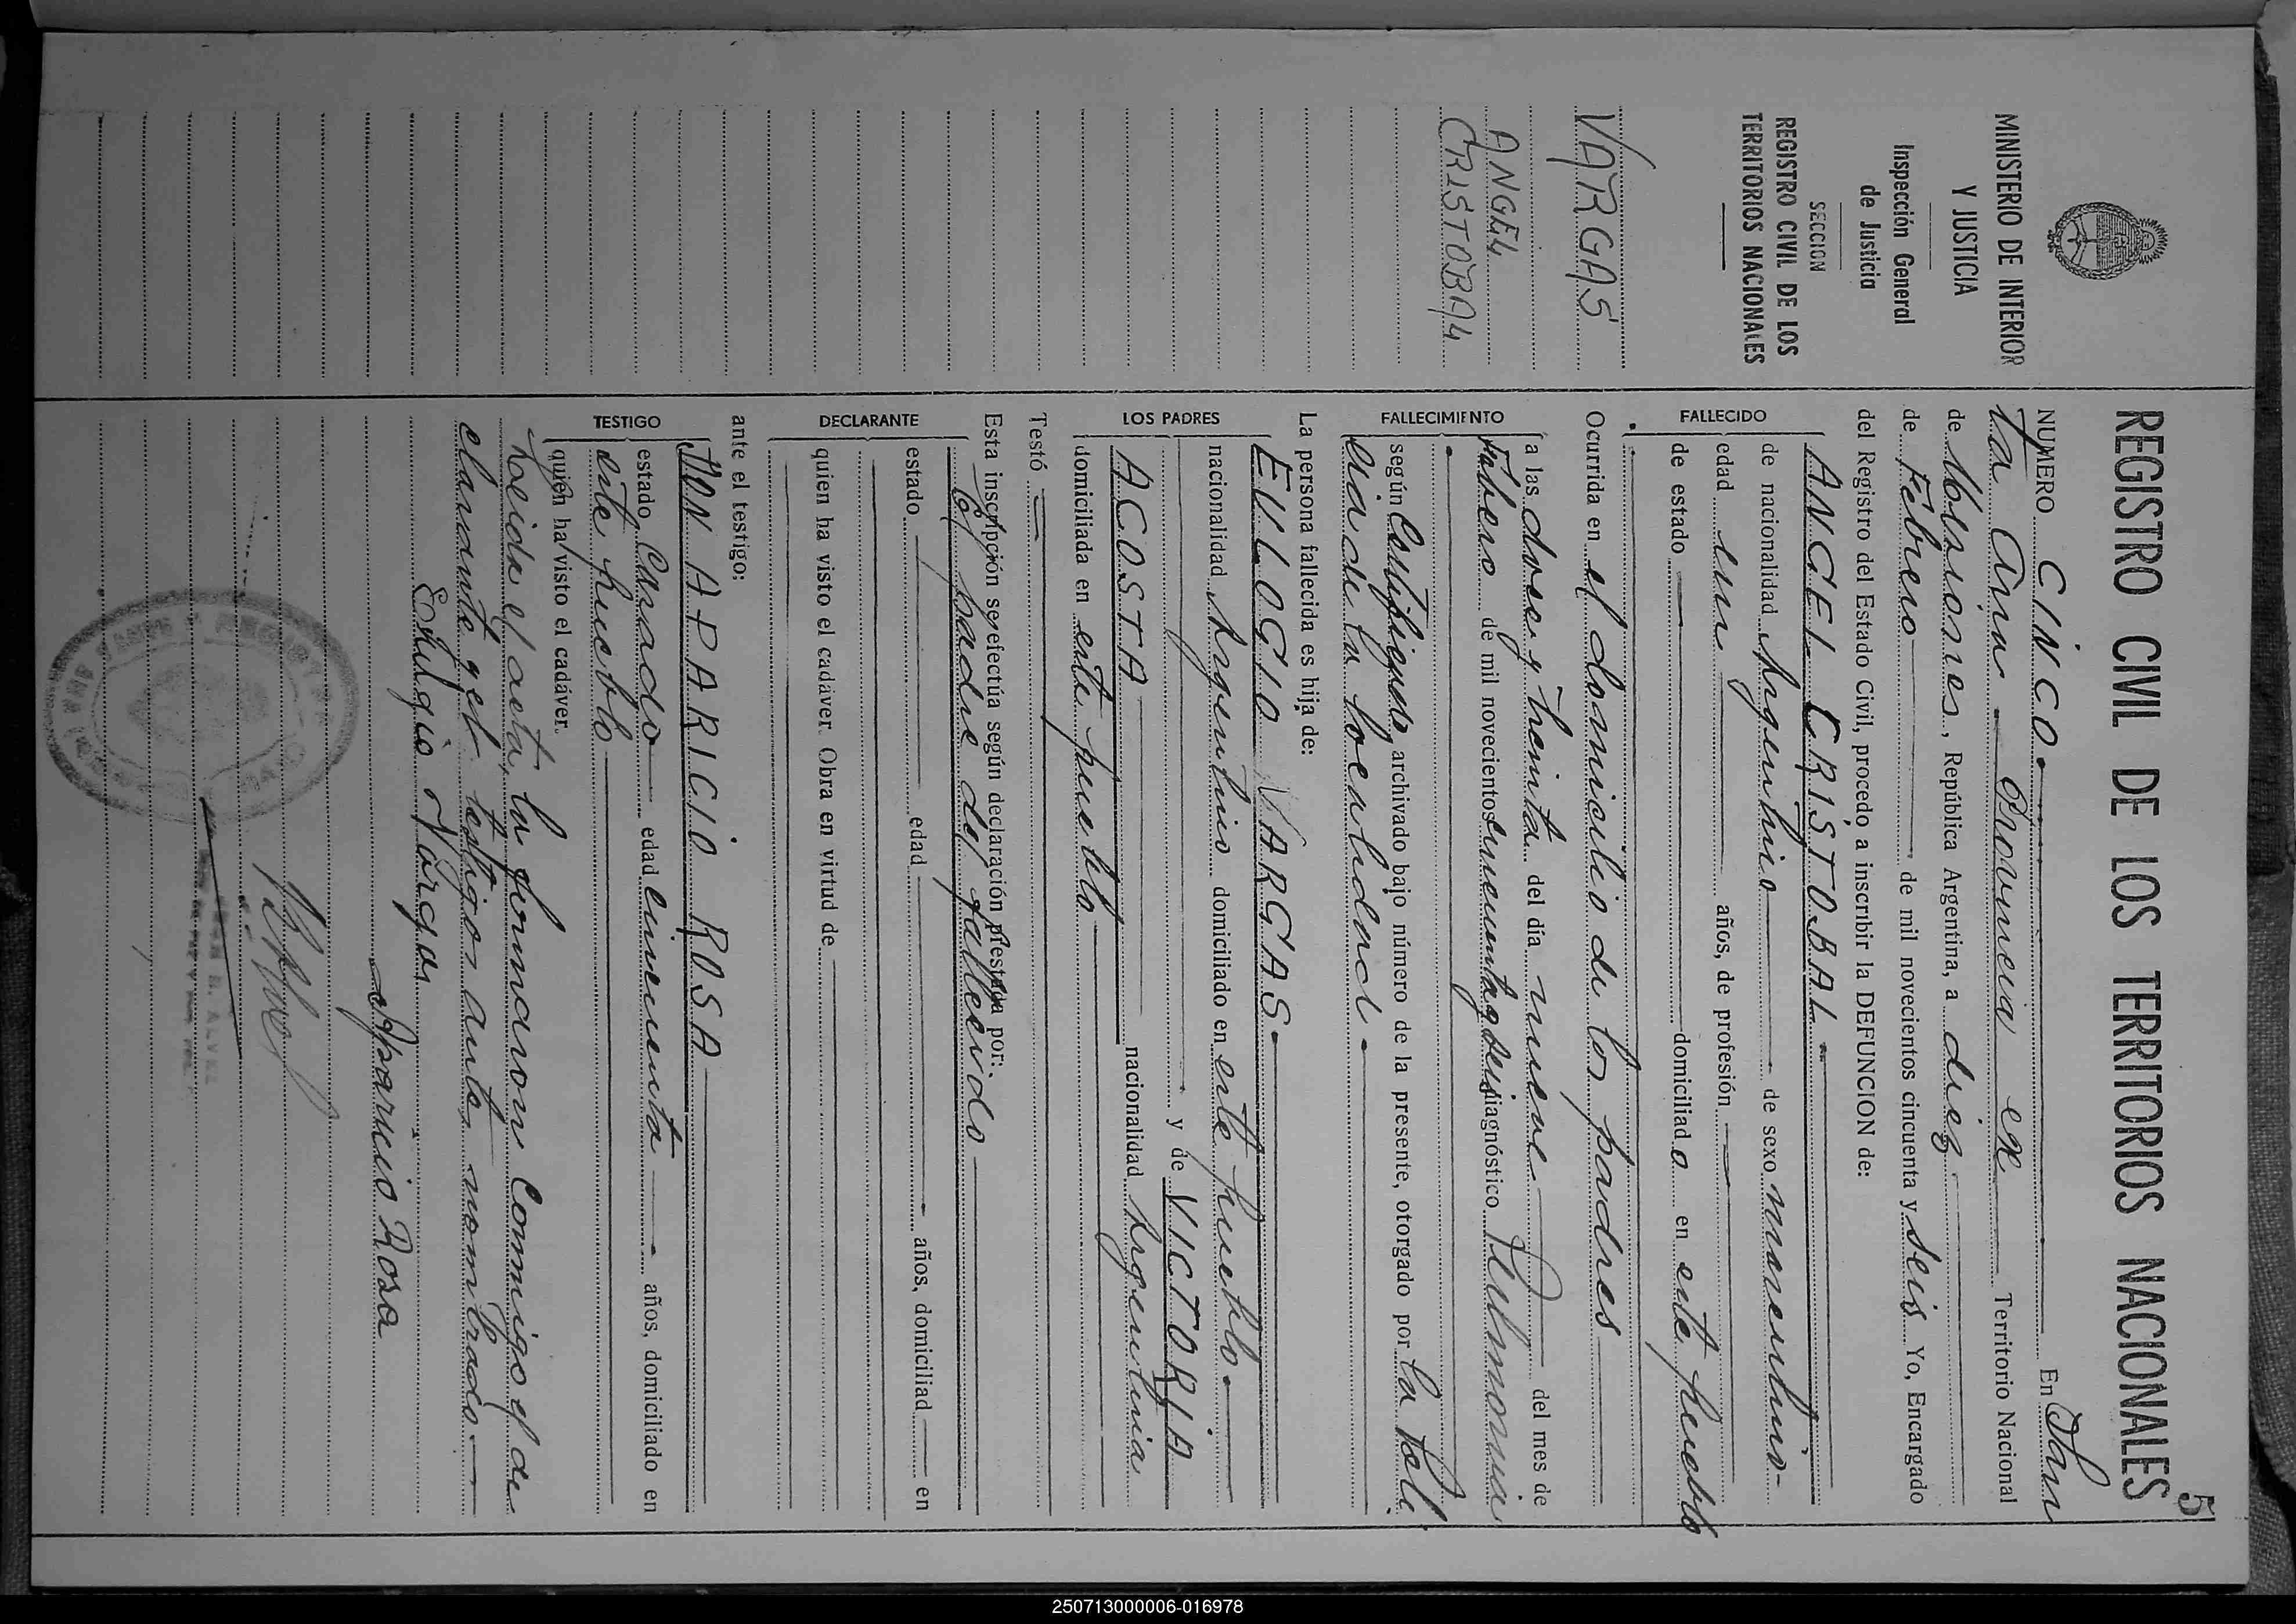 5
REGISTRO CIVIL DE LOS TERRITORIOS NACIONALES
MINISTERIO DE INTERIOR
Y JUSTICIA
Inspección General
de Justicia
SECCION
REGISTRO CIVIL DE LOS
TERRITORIOS NACIONALES
VARGAS
ANGEL
CRISTOBAL
NUMERO CINCO. En San
ta Ana - Provincia ex Territorio Nacional
de Misiones, República Argentina, a diez
de Febrero de mil novecientos cincuenta y seis Yo, Encargado
del Registro del Estado Civil, procedo a inscribir la DEFUNCION de:
FALLECIDO
ANGEL CRISTOBAL.-
de nacionalidad Argentino de sexo masculino-
edad un años, de profesión
de estado domiciliado en este pueblo
Ocurrida en el domicilio de los padres
FALLECIMIENTO
a las doce y treinta del día nueve del mes de
Febrero de mil novecientos cincuenta y seis diagnóstico Pulmonia
según Certificado, archivado bajo número de la presente, otorgado por la Poli
cia de la localidad.-
La persona fallecida es hija de:
LOS PADRES
EULOGIO VARGAS.
nacionalidad Argentino domiciliado en este pueblo.-
y de VICTORIA
ACOSTA nacionalidad Argentina
domiciliada en este pueblo
Testó
Esta inscripción se efectúa según declaración prestada por:
DECLARANTE
El padre del fallecido
estado edad años, domiciliad en
quien ha visto el cadáver. Obra en virtud de
ante el testigo:
TESTIGO
DON APARICIO ROSA
estado Casado edad cincuenta años, domiciliado en
este pueblo
quien ha visto el cadáver.
Leida el acta, la formaron conmigo el de
clarante y el testigo antes nombrado.-
Eulogio Vargas
Aparicio Rosa
250713000006-016978